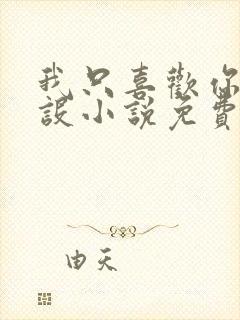 我只喜歡你
設小說免費
由天